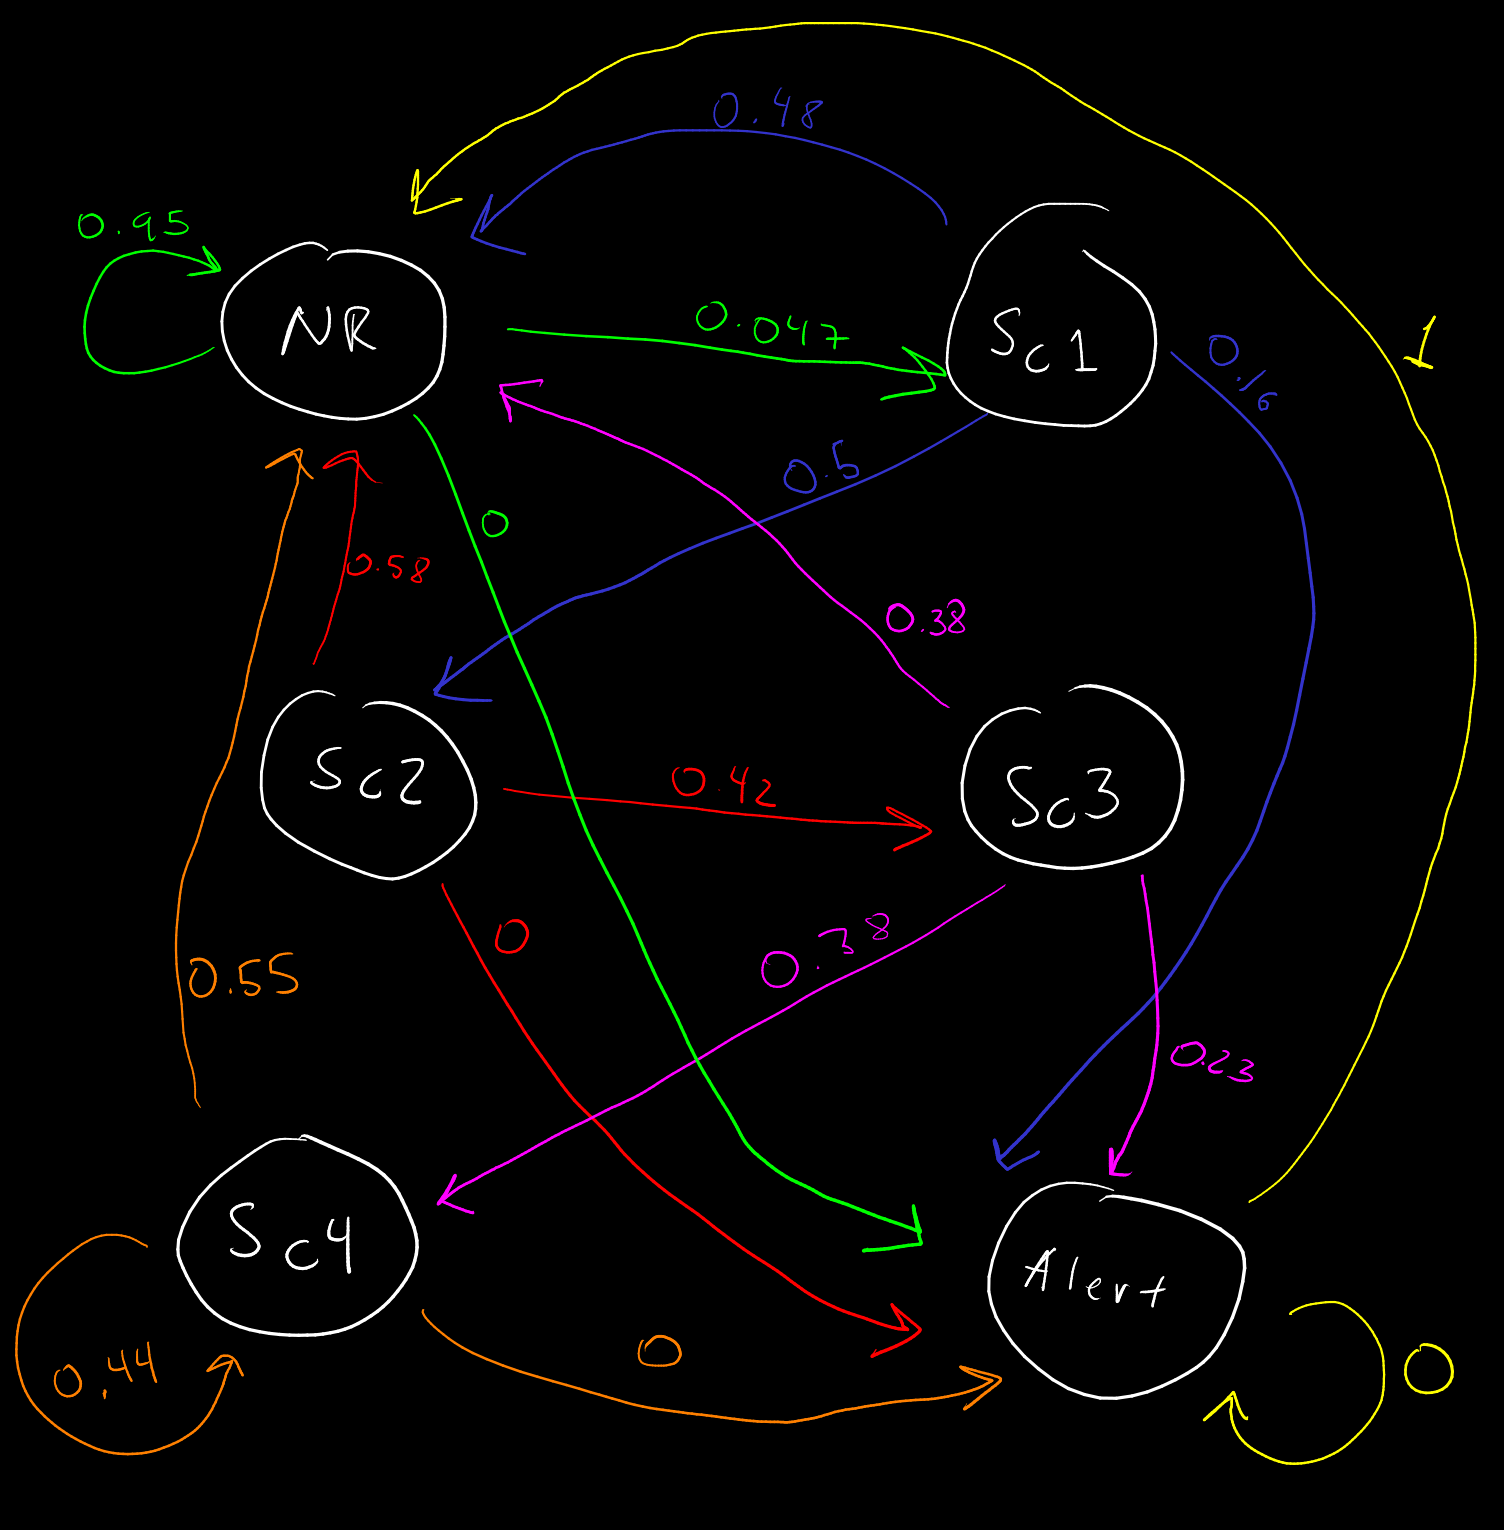 0.48
0.95
NR
0.047
Sc1
1
0.16
0.5
0
0.58
0.38
Sc2
0.42
Sc3
0
0.38
0.55
0.23
Sc4
Alert
0.44
0
0